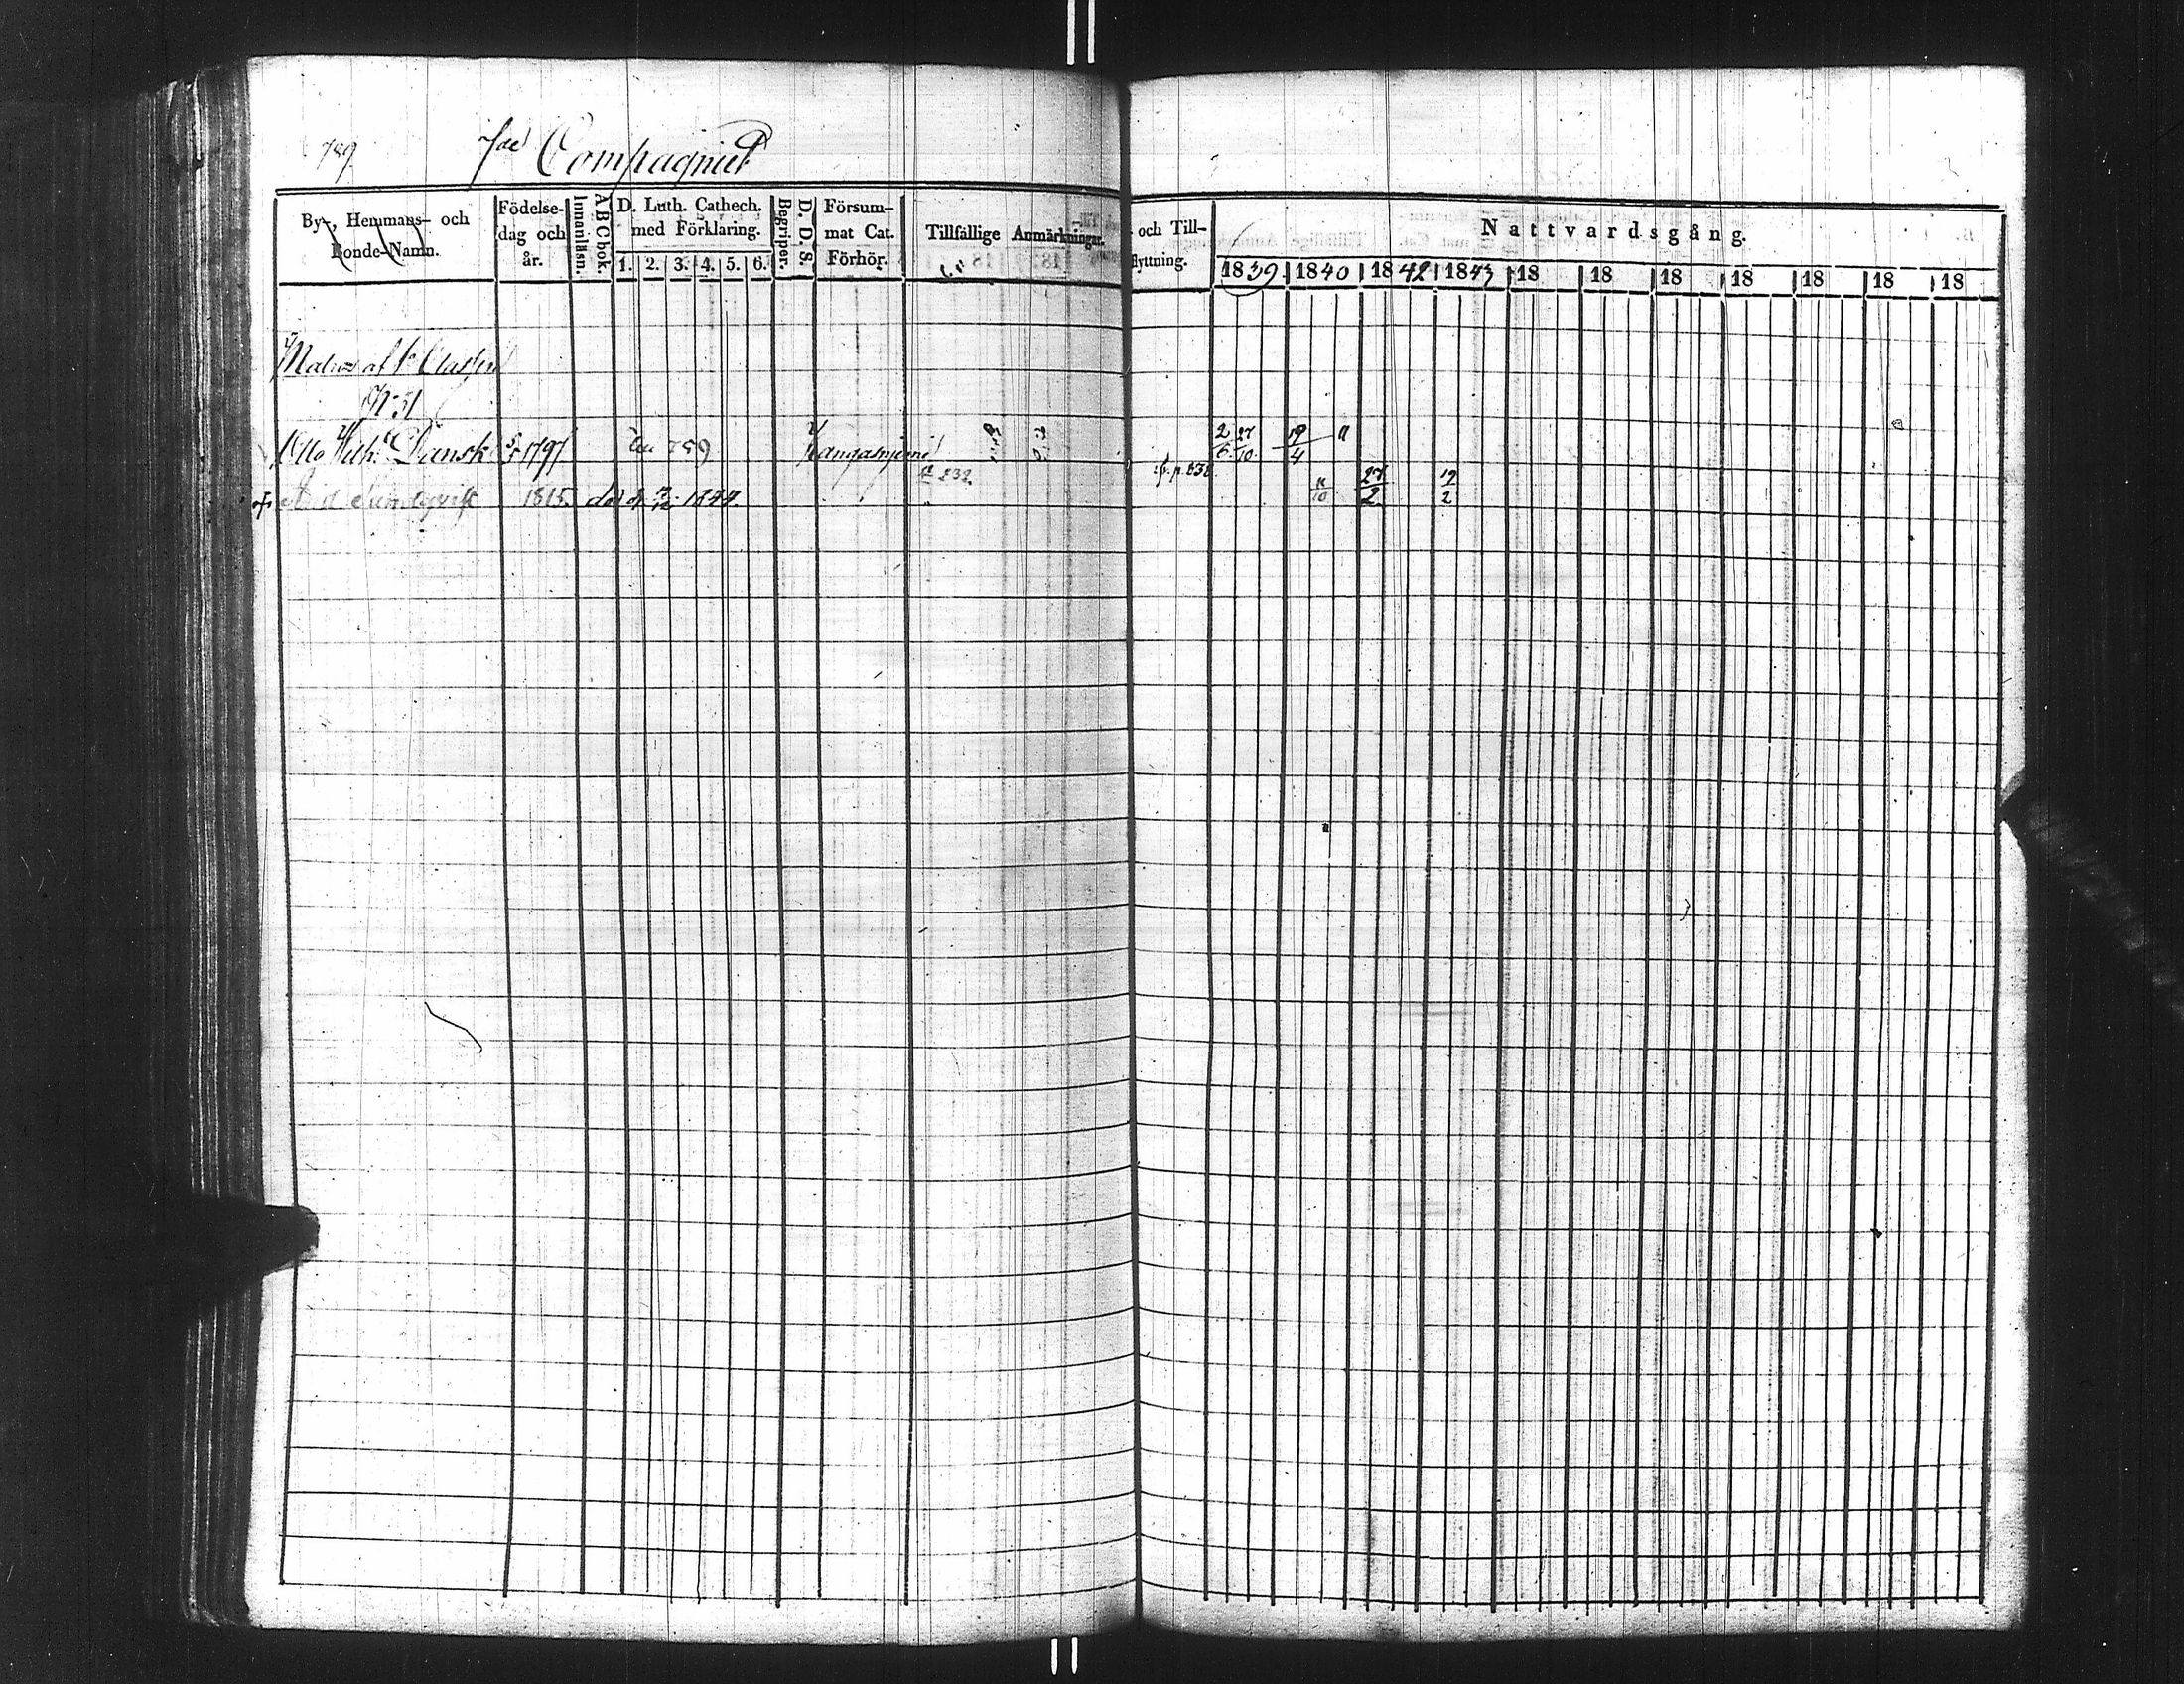 789 7de Compagniet
By-, Hemmans- och Bonde-Namn.
Födelse-dag och år.
Innanläsn.
A B C bok.
D. Luth. Cathech. med Förklaring.
1. 2. 3. 4. 5. 6.
Begriper.
D. D. S.
Försum-mat Cat. Förhör.
Tillfällige Anmärkningar.
och Till-
flyttning.
Nattvardsgång.
1839 1840 1842 1843 18 18 18 18 18 18 18
Matros af 1a Classen
No 31
Otto Wilh. Dansk 5/5 1797 759 Kangasniemi 2/6 27/10 19/4 11
232 f. p. 838
1815 död 1844. 11/10 27/2 12/2